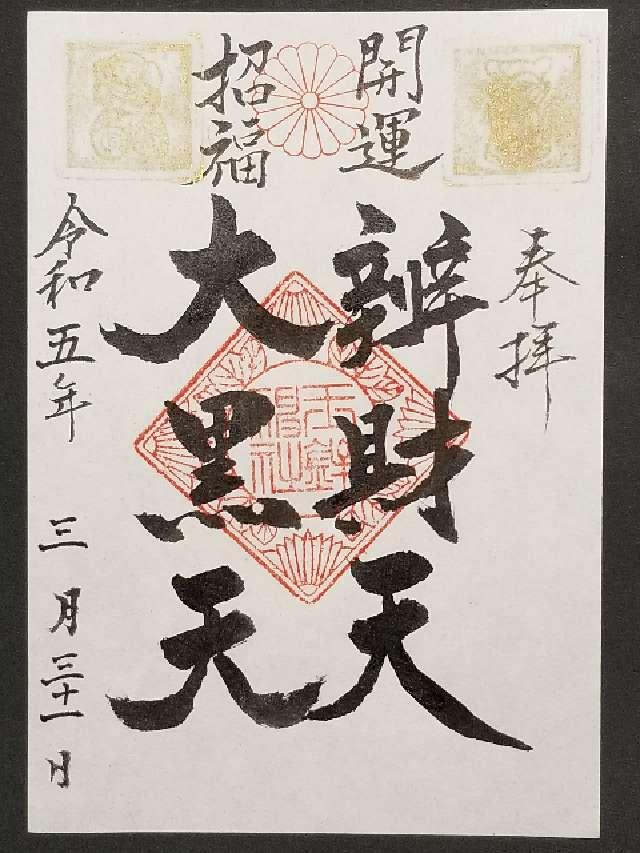 奉拝
開運
辨財天
招福
大黒天
令和五年 三月三十一日